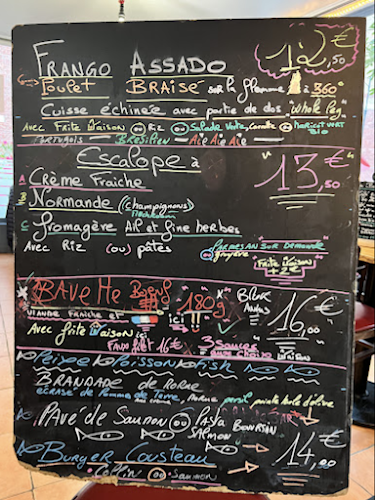 FRANGO ASSADO 12,50 €
Poulet BRAISÉ sur la flamme à 360°
Cuisse échinée avec partie de dos "Whole leg"
Avec Frite Maison ou Riz ou Salade Verte, Carotte ou Haricot vert Bio
Portugais Bresilien Aïe Aïe Aïe
Escalope à 13,50 €
A Crème Fraiche
B Normande (champignons)
C fromagère Ail et fine herbes
Avec Riz (ou) pâtes
Parmesan sur demande
ou gruyère
Frite Maison
+ 2 €
BAVette Boeuf "180g" 16,00 €
VIANDE FRAICHE ET ici
Avec frite Maison
FAUX filet 16 € 3 sauces
aux choix Maison
Peixe Poisson Fish
BRANDADE de Morue
écrasé de Pomme de Terre, Morue persil pointe huile d'olive
PAvé de Saumon ou Pasta BOURSIN
SALMON
Burger Cousteau 14,00 €
Colin ou Saumon